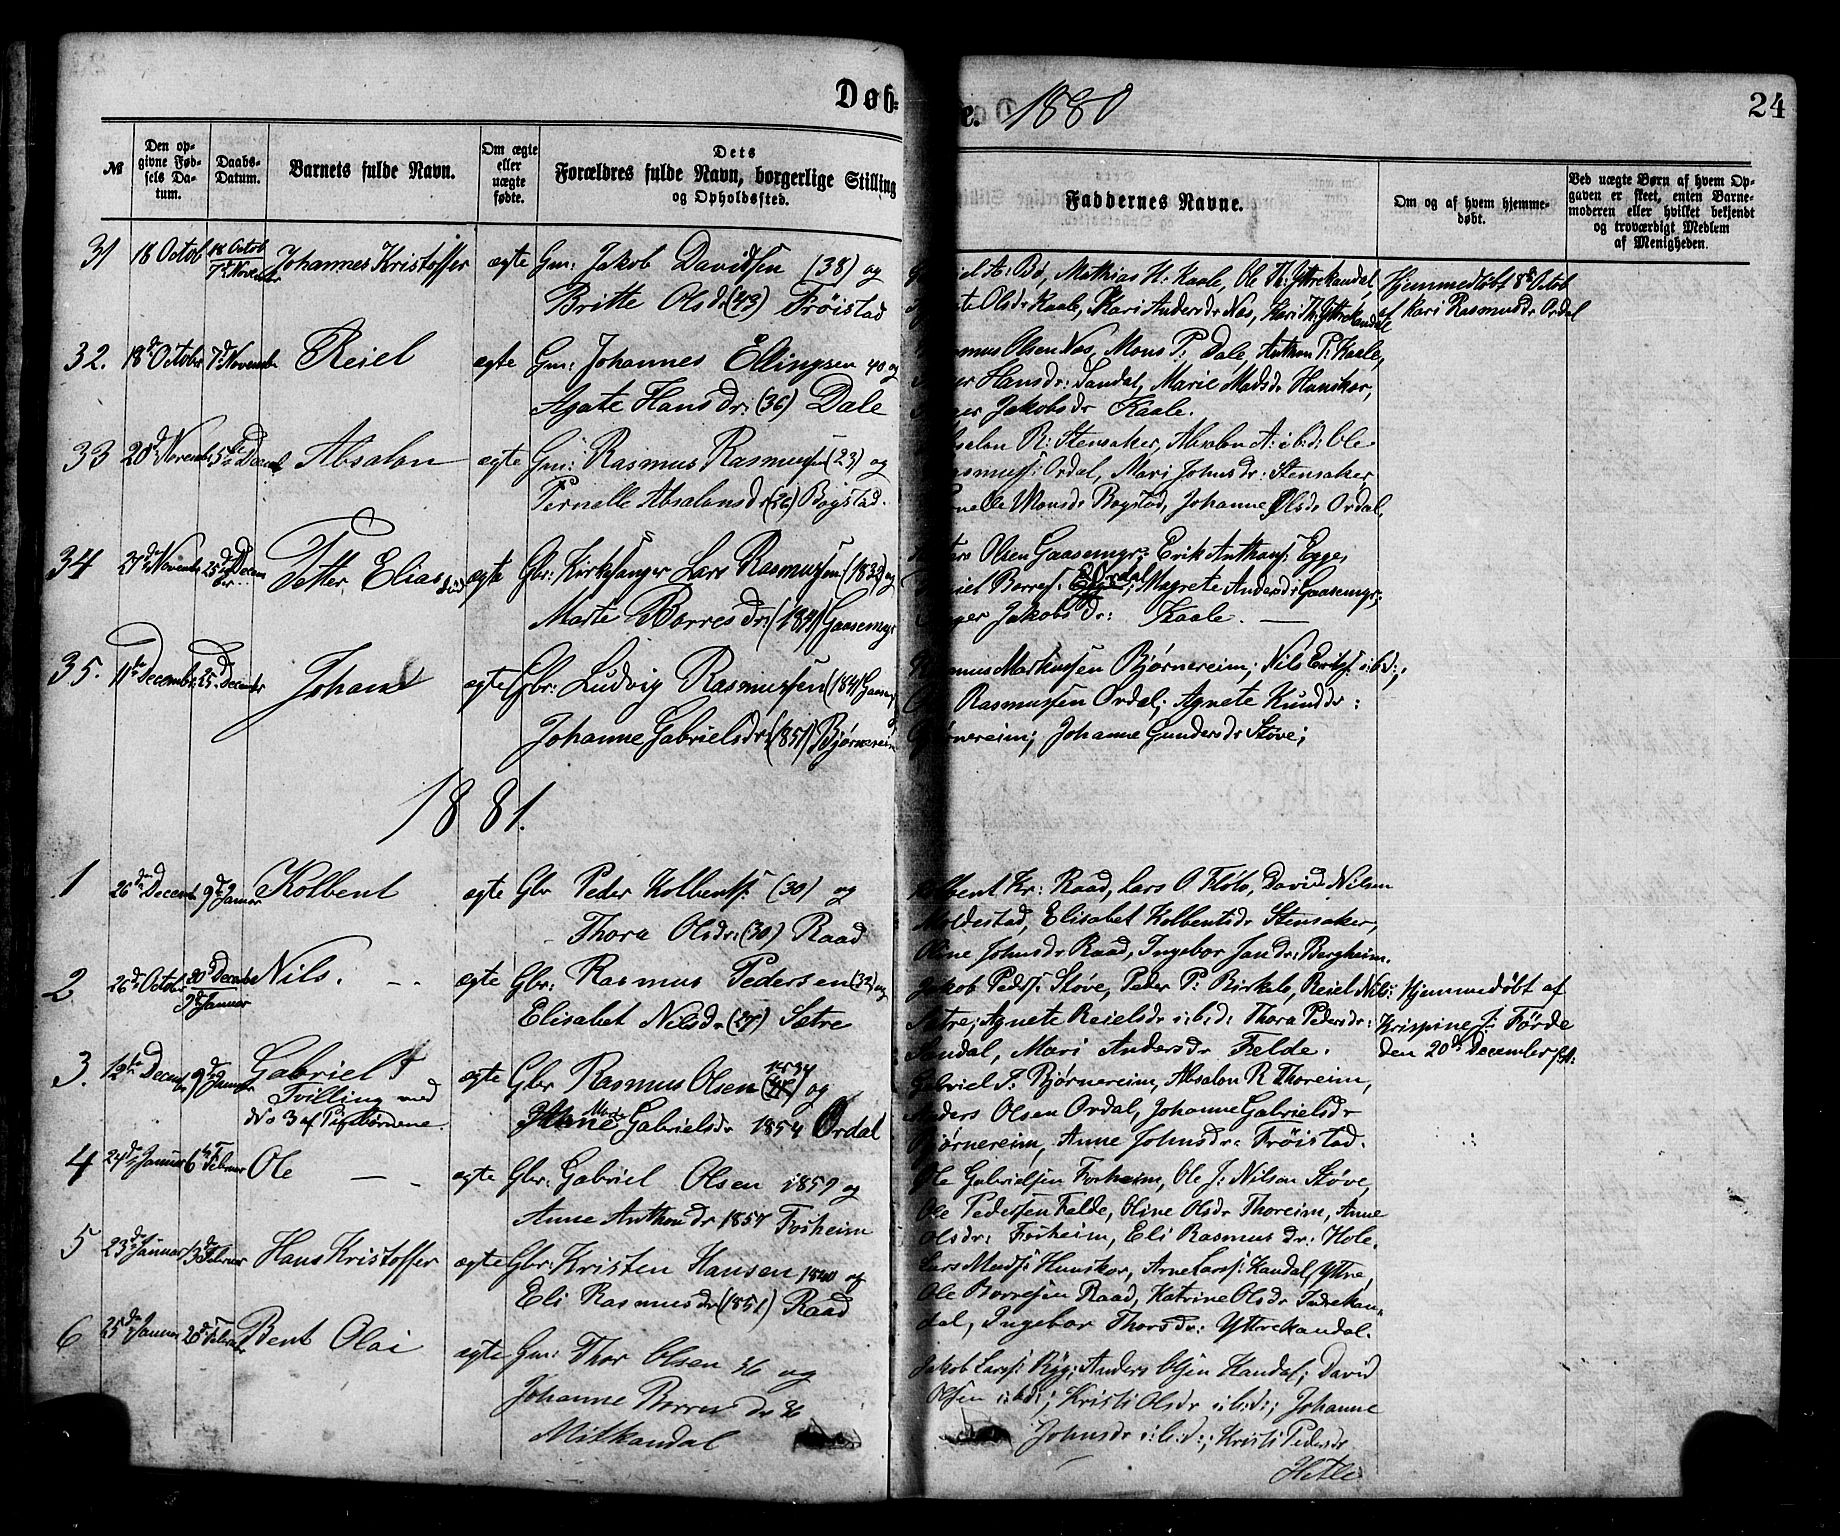 Døb-
e. 1880
24
№
Den opgivne Fødsels Datum.
Daabs-Datum.
Barnets fulde Navn.
Om ægte eller uægte fødte.
Dets Forældres fulde Navn, borgerlige Stilling og Opholdssted.
Faddernes Navne.
Om og af hvem hjemmedøbt.
Ved uægte Børn af hvem Opgaven er skeet, enten Barnemoderen eller hvilket bekjendt og troværdigt Medlem af Menigheden.
31 18 Octob 18 Octob 7de November Johannes Kristoffer ægte Gm: Jakob Davidsen (38) og
Britte Olsdr (43) Frøistad
Bø, Mathias H. Kaale, Ole Th: Yttrekandal,
Olsdr Kaale, Mari Andersdr Nos, Kari Th: Yttrekandal
Hjemmedøbt 8de Octob
af Kari Rasmusdr Ordal
32. 18de October 7de Novemb Reiel ægte Gm: Johannes Ellingsen 40 og
Agate Hansdr: (36) Dale
Olsen Nos, Mons P: Dale, Anthon P: Kaale,
Hansdr: Sandal, Marie Madsdr Hunskor,
Jakobsdr Kaale.
33 20de Novemb 5te Decemb Absalon ægte Gm: Rasmus Rasmussen (23) og
Pernelle Absalonsdr (26) Bogstad.
R: Stensaker, Absalon A: i:b:d: Ole
Ordal, Mari Johnsdr: Stensaker,
Monsdr Bogstad, Johanne Olsdr Ordal.
34 27de Novemb 25de Decem ber Petter Elias ægte Gbr: Kirkesanger Lars Rasmussen (1832) og
Marte Borresdr: (1841) Gaasemyr
Olsen Gaasemyr: Erik Anthons: Egge,
Borres: Ordal; Magrete Andersdr: Gaasemyr;
Jakobsdr: Kaale. —
35. 11te Decemb 25 December Johan ægte Gbr: Ludvig Rasmussen (1841)
Johanne Gabrielsdr: (1851) Bjørnereim
Markussen Bjørnereim; Nils Eriks: i:b:d:;
Rasmussen Ordal; Agnete Knudsdr:
Bjørnereim; Johanne Gundersdr Støve;
1881.
1 26de Decemb 9de Januar Kolbent ægte Gbr Peder Kolbents: (30) og
Thora Olsdr: (30) Raad
Kolbent Kr: Raad, Lars O Fløto, David Nilsen
Moldestad, Elisabet Kolbentsdr Stensaker,
Oline Johnsdr Raad, Ingebor Jansdr: Bergheim.
2 26de October 20de Decembr 9de Januar Nils. — ægte Gbr: Rasmus Pedersen (32) og
Elisabet Nilsdr (27) Sætre
Jakob Peds: Støve, Peder P: Birkelo, Reiel Nils:
Sætre; Agnete Reielsdr i:b:d: Thora Pedersdr:
Sandal, Mari Andersdr Felde.
Hjemmedøbt af
Krispine J: Førde
den 20de December f:A:
3. 12te Decemb 9de Januar Gabriel †
Tvilling med
No 3 af Pigebørnene.
ægte Gbr Rasmus Olsen 1834 og
Gabrielsdr 1854 Ordal
Gabriel T: Bjørnereim, Absalon R Thoreim,
Anders Olsen Ordal, Johanne Gabrielsdr
Bjørnereim, Anne Johnsdr: Frøistad.
4 24de Januar 6te Februar Ole — ægte Gbr: Gabriel Olsen 1859 og
Anne Anthonsdr 1857 Forheim
Ole Gabrielsen Forheim, Ole J: Nilsen Støve,
Ole Pedersen Felde, Oline Olsdr Thoreim, Anne
Olsdr: Forheim, Eli Rasmusdr: Hole.
5 23de Januar 13de Februar Hans Kristoffer ægte Gbr: Kristen Hansen 1840 og
Eli Rasmusdr (1851) Raad
Lars Mads: Hunskor, Arne Lars: Kandal Yttre,
Ole Borresen Raad, Katrine Olsdr Indrekan-
dal, Ingebor Thorsdr: Yttrekandal.
6 25de Januar 20de Februar Bent Olai ægte Gm: Thor Olsen 36 og
Johanne Borresdr 36
Mitkandal
Jakob Lars: Ryg; Anders Olsen Kandal; David
Olsen i:b:d:; Kristi Olsdr i:b:d:; Johanne
Johnsdr i:b:d:; Kristi Pedersdr
Hetle